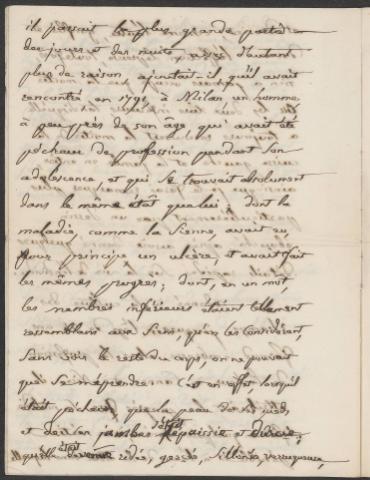 il passait la plus grande partie
des jours et des nuits avec d'autant
plus de raison, ajoutait-il qu'il avait
rencontré en 1791 à Milan un homme
à peu près de son âge, qui avait été
pêcheur de profession pendant son
adolescence et qui se trouvait absolument
dans le même état que lui, dont la
maladie, comme la sienne, avait eu
pour principe un ulcère, et avait fait
les mêmes progrès; dont, en un mot,
les membres inférieurs étaient tellement
ressemblans aux siens, qu'en les considérant,
sans voir le reste du corps, on ne pouvait
que se méprendre. C'est en effet lorsqu'il
était pêcheur, que la peau de ses pieds
et de ses jambes s'était épaissie et durcie,
qu'elle était devenue rude, gercée, verruqueuse,